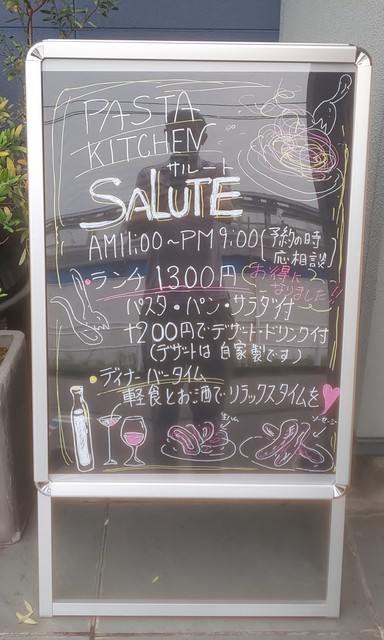 PASTA
KITCHEN
サルート
SALUTE
AM11:00~PM9:00(予約の時応相談)
・ランチ 1300円(お得になりました!!)
パスタ・パン・サラダ付
+200円でデザート・ドリンク付
(デザートは自家製です)
・ディナーバータイム
軽食とお酒でリラックスタイムを
生ハム
ソーセージ